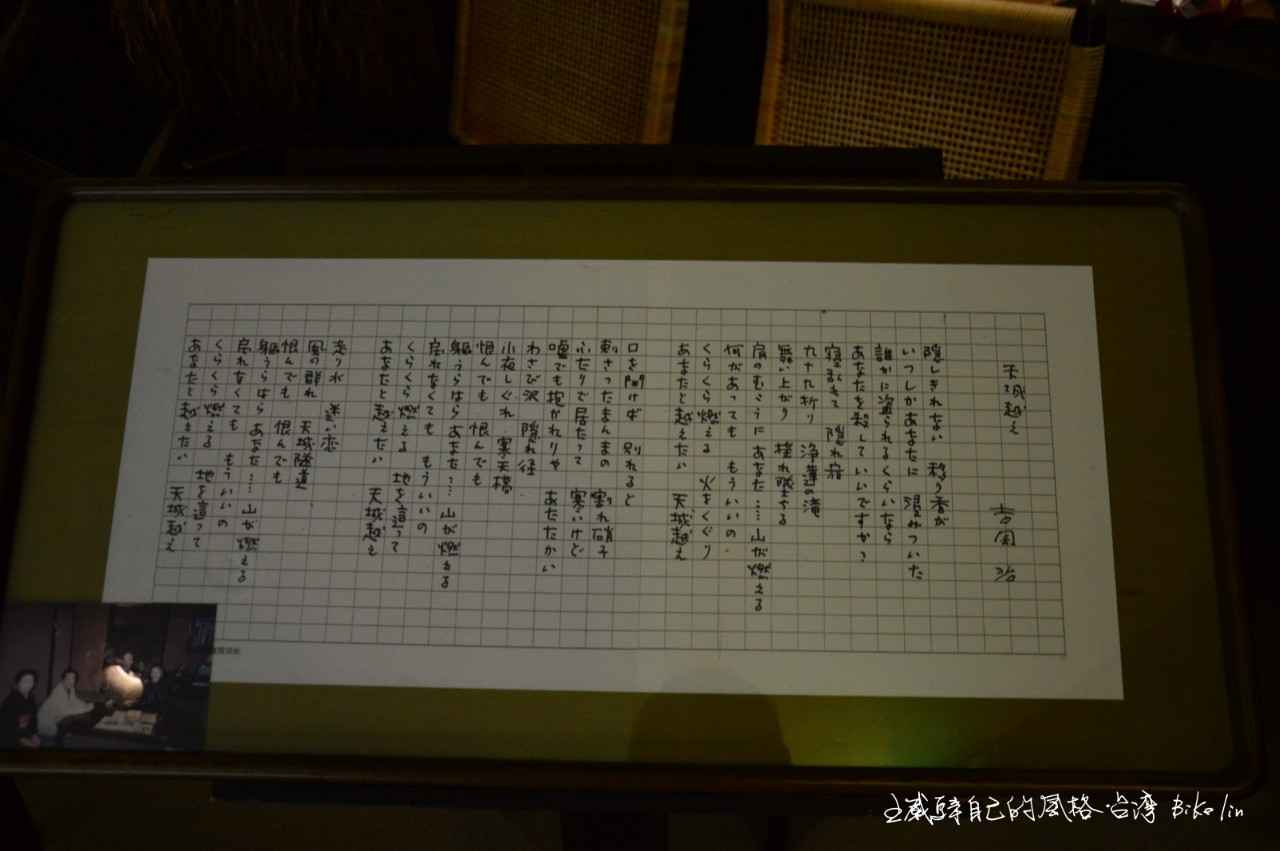 天城越え
吉岡治
隠しきれない 移り香が
いつしかあなたに 浸みついた
誰かに盗られるくらいなら
あなたを殺していいですか?
寝乱れて 隠れ宿
九十九折り 浄蓮の滝
舞い上がり 揺れ墜ちる
肩のむこうに あなた……山が燃える
何があっても もういいの
くらくら燃える 火をくぐり
あなたと越えたい 天城越え
口を開けば 別れると
刺さったまんまの 割れ硝子
ふたりで居たって 寒いけど
嘘でも抱かれりゃ あたたかい
わさび沢 隠れ径
小夜しぐれ 寒天橋
恨んでも 恨んでも
軀うらはら あなた……山が燃える
戻れなくても もういいの
くらくら燃える 地を這って
あなたと越えたい 天城越え
走り水 迷い恋
風の群れ 天城隧道
恨んでも 恨んでも
軀うらはら あなた……山が燃える
戻れなくても もういいの
くらくら燃える 地を這って
あなたと越えたい 天城越え
自己的風格.台湾 Biko lin